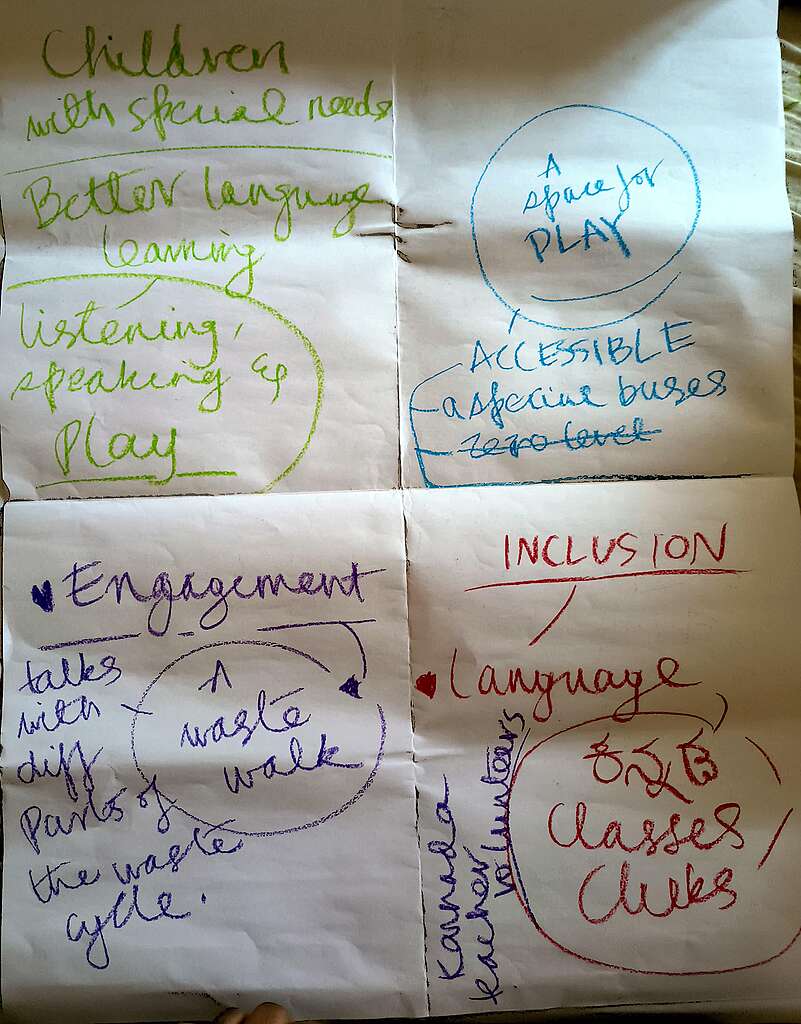 Children
with special needs
Better language
learning
listening,
speaking &
Play
A
space for
PLAY
ACCESSIBLE
buses
zero level
Engagement
A
waste
walk
talks
with
diff
Parts of
the waste
cycle.
INCLUSION
Language
ಕನ್ನಡ
Classes
Clubs
Kannada
teacher
volunteers